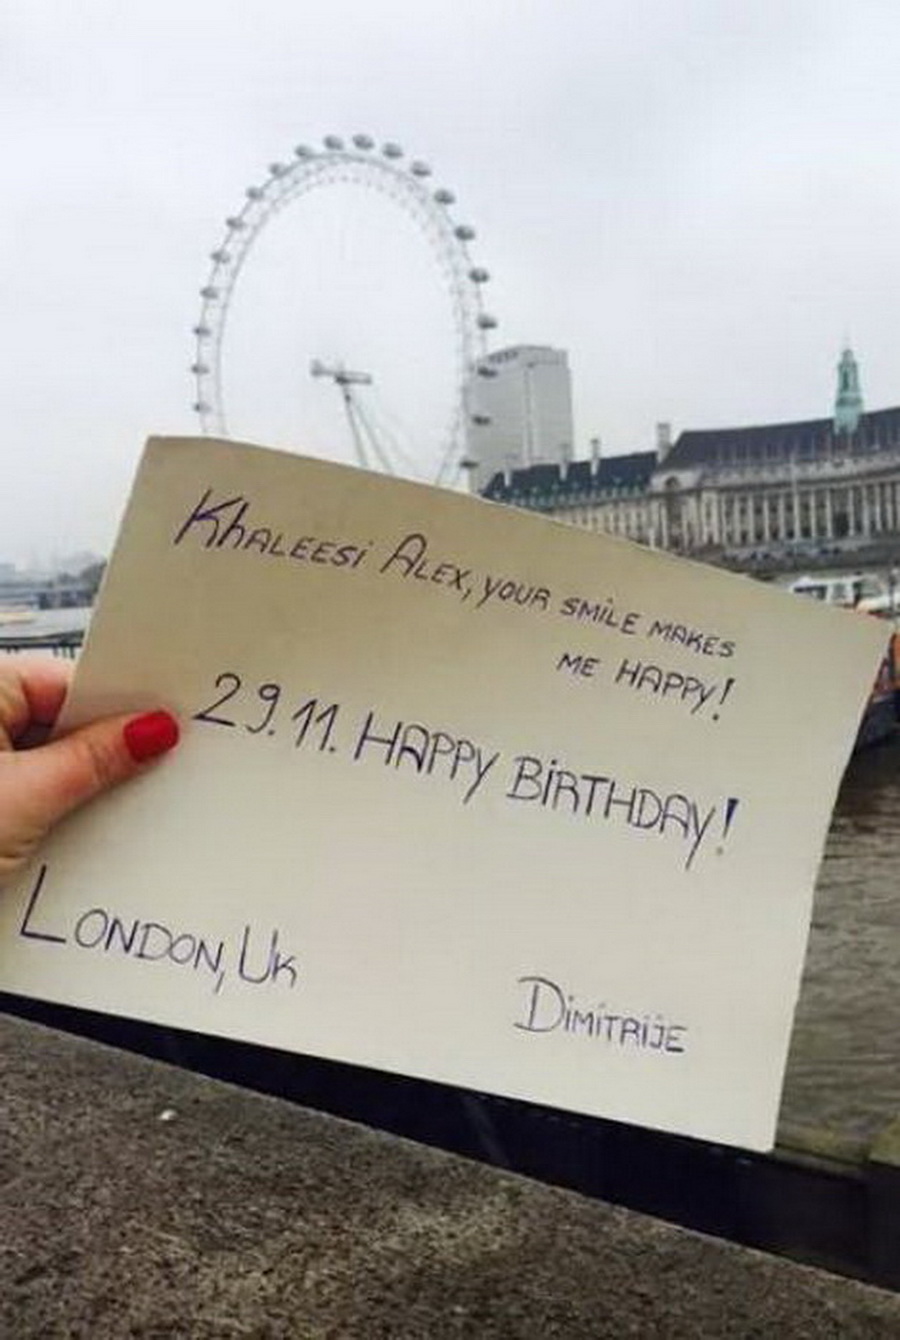 Khaleesi Alex, your smile makes
me happy!
29.11. Happy Birthday!
London, UK
Dimitrije